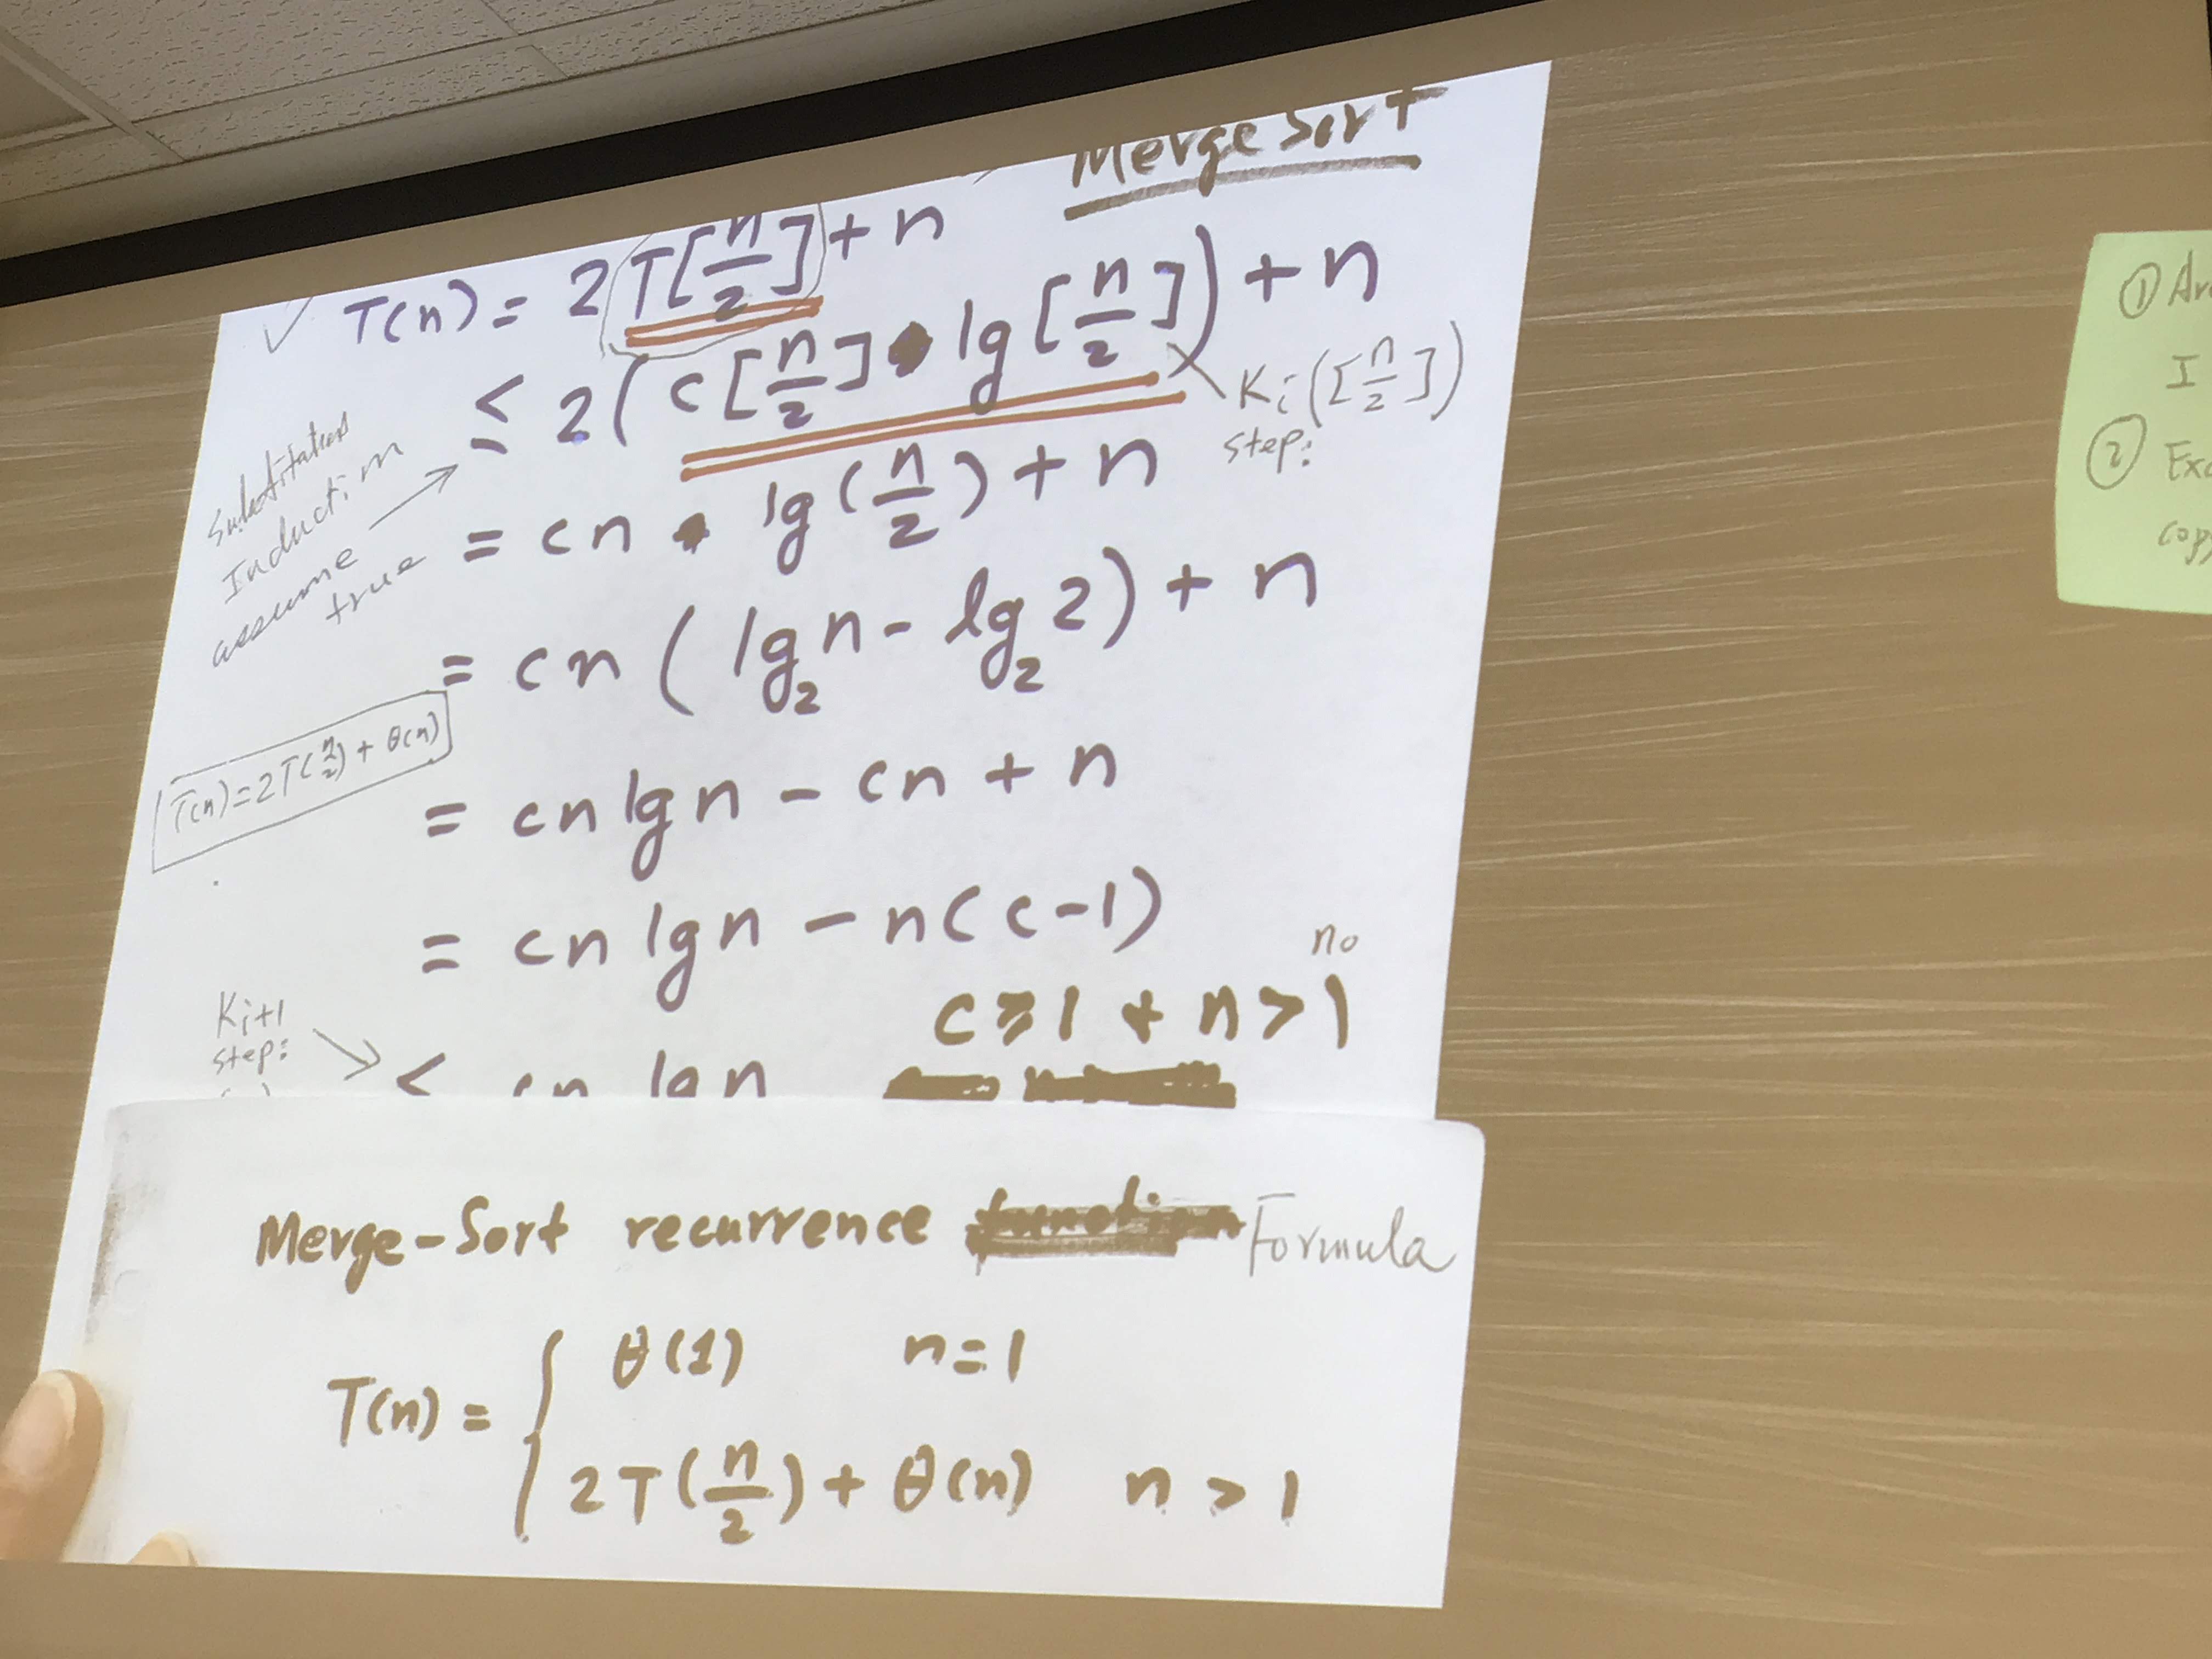 Merge Sort
✓ T(n) = 2T[n/2] + n
≤ 2(c[n/2] • lg[n/2]) + n
Ki([n/2])
step:
Substitution
Induction
assume →
true
= cn • lg(n/2) + n
= cn(lg₂n - lg₂2) + n
T(n) = 2T(n/2) + θ(n)
= cn lg n - cn + n
= cn lg n - n(c-1)
n₀
c ≥ 1 + n > 1
Ki+1
step:
< cn lg n
Merge-Sort recurrence function Formula
T(n) = { θ(1) n=1
2T(n/2) + θ(n) n > 1
①
I
②
copy